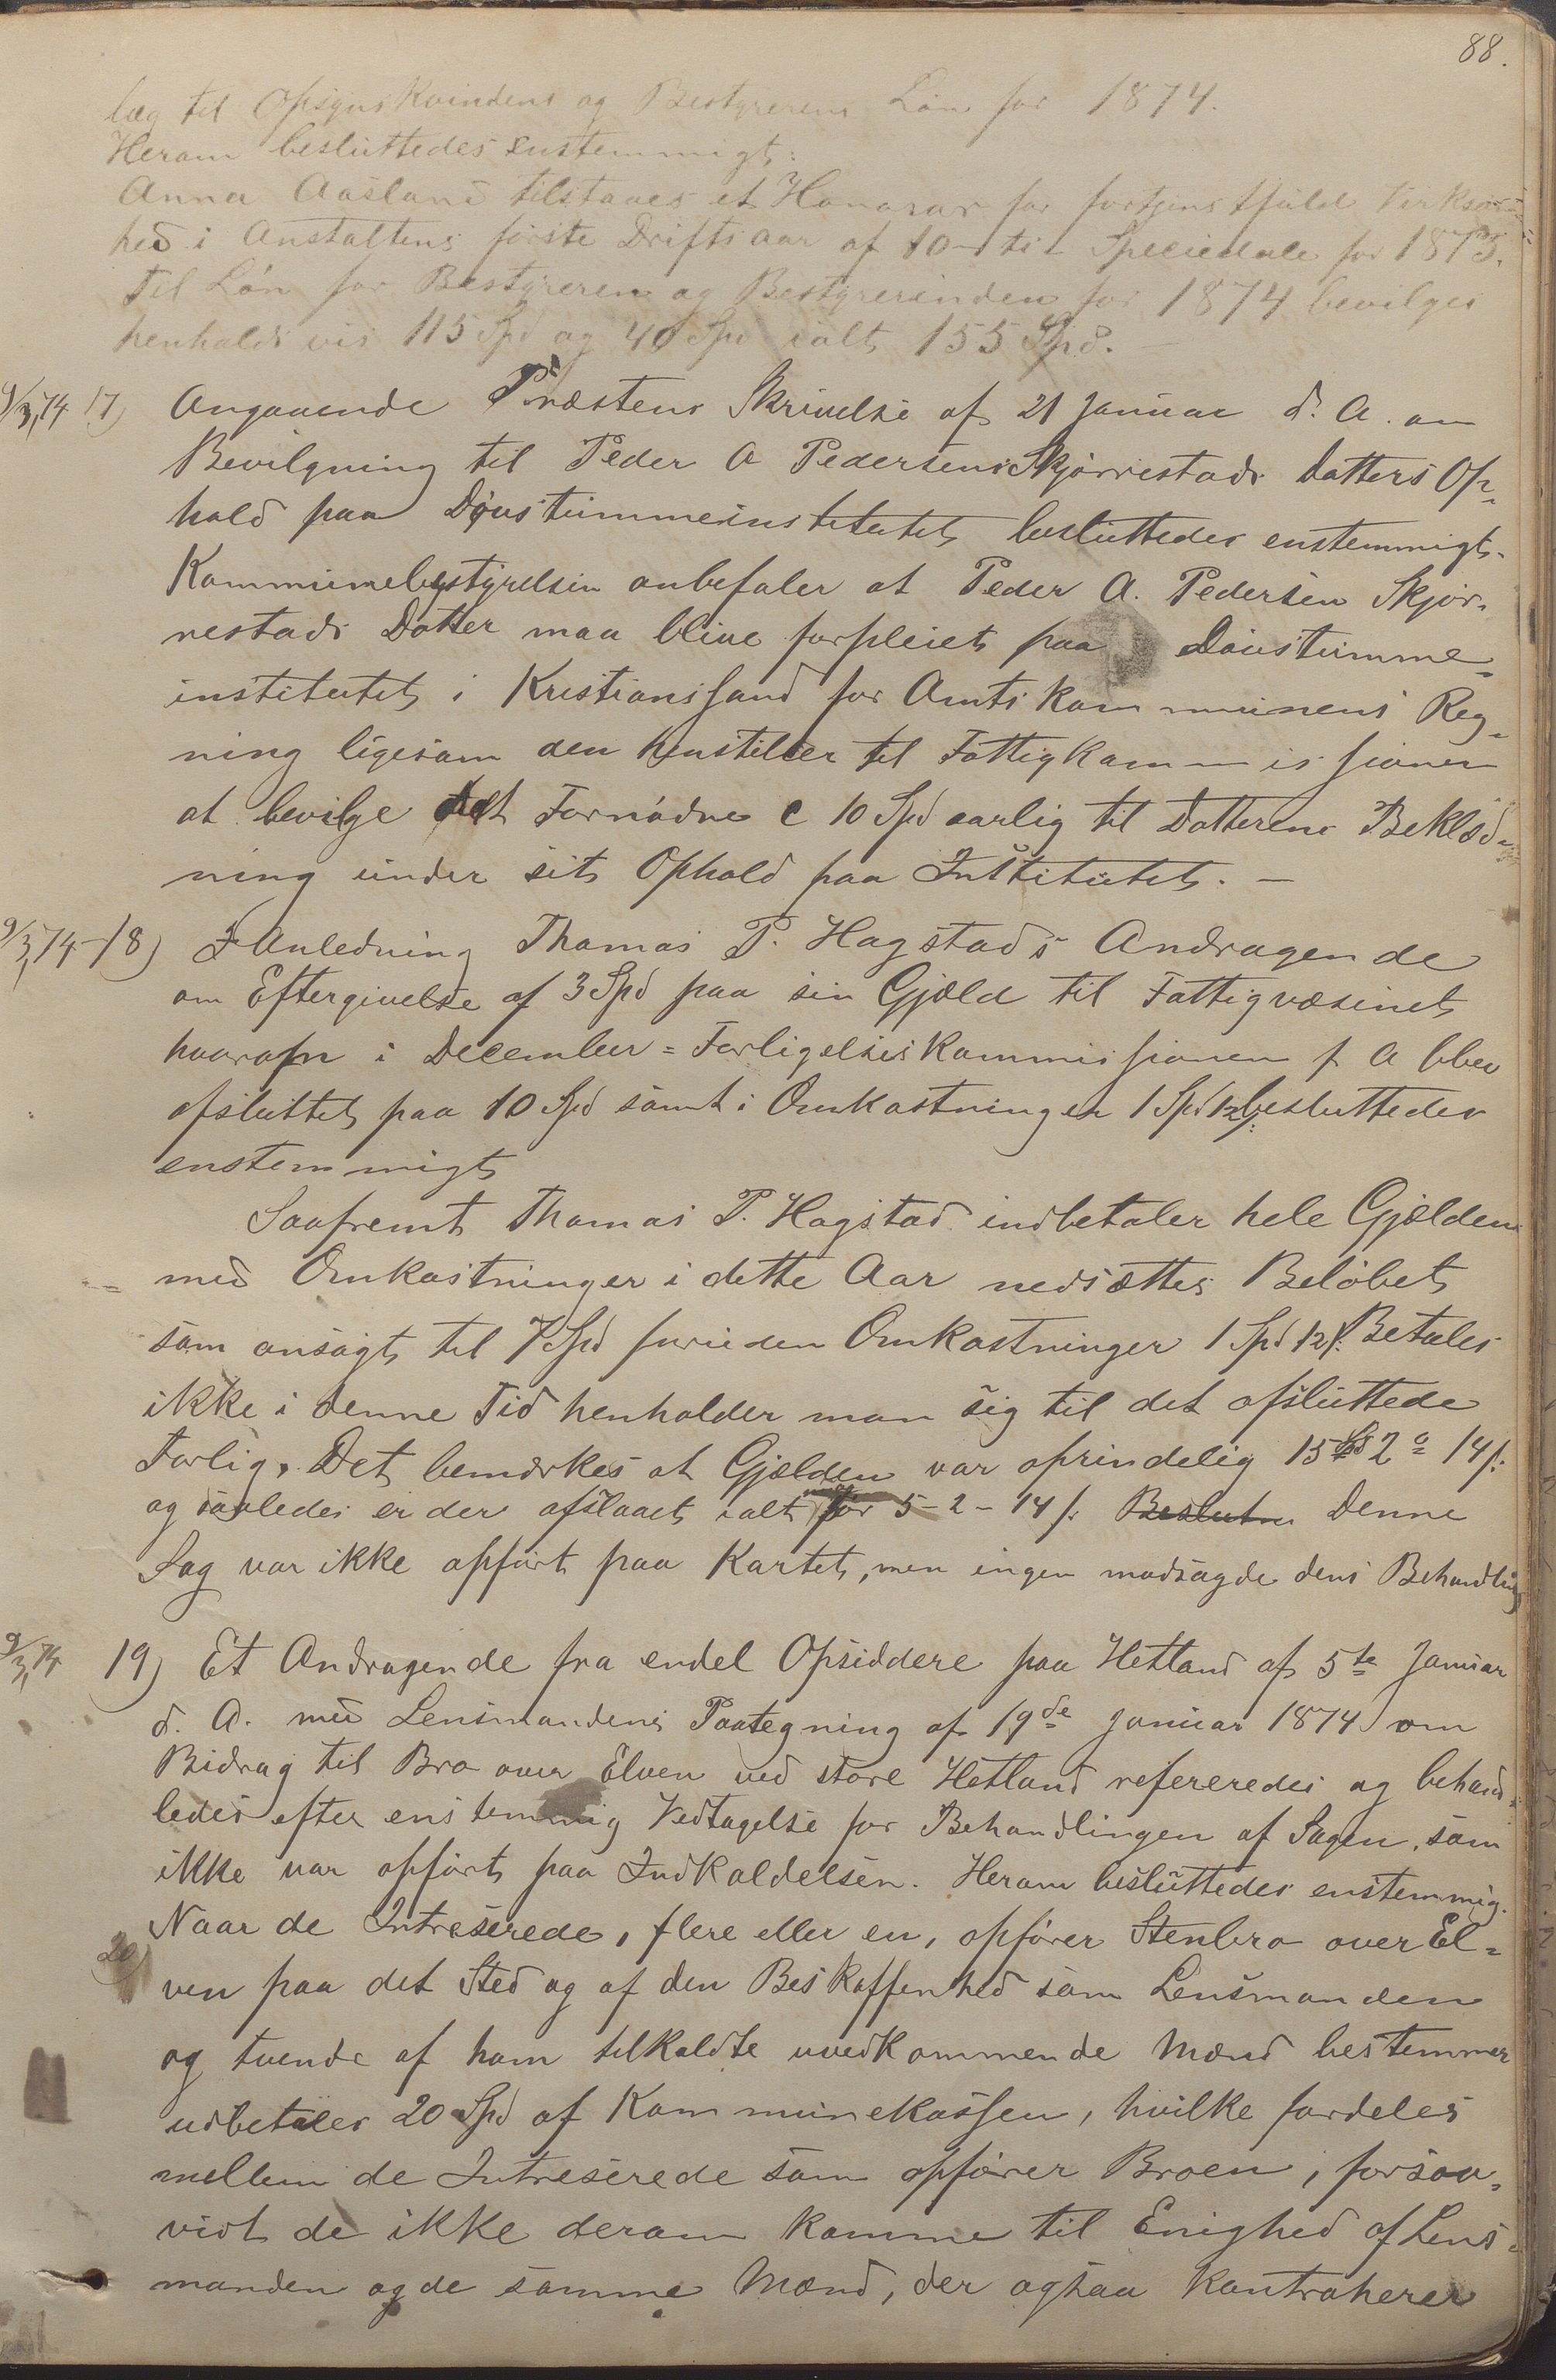 88.
læg til Opsynskvindens og Bestyrerens Løn for 1874.
Herom besluttedes enstemmigt:
Anna Aasland tilstaaes et Honorar for fortjenstfuld Virksom
hed i Anstaltens første Driftsaar af 10 - ti - Speciedale for 1873.
Til Løn for Bestyreren og Bestyrerinden for 1874 bevilges
henholdsvis 115 Spd og 40 Spd ialt 155 Spd. -
9/3, 74 17) Angaaende Præstens Skrivelse af 21 Januar d. A. om
Bevilgning til Peder A Pedersens Skjørrestads Datters Op-
hold paa Døvstummeinstitutet besluttedes enstemmigt.
Kommunebestyrelsen anbefaler at Peder A. Pedersen Skjør-
restads Datter maa blive forpleiet paa Døvstumme-
institutet i Kristianssand for Amtskommunens Reg-
ning ligesom den henstiller til Fattigkommissionen
at bevilge det Fornødne c 10 Spd aarlig til Datterens Beklæd-
ning under sit Ophold paa Institutet. -
9/3, 74 - 18) I Anledning Thomas P. Hagstads Andragende
om Eftergivelse af 3 Spd paa sin Gjæld til Fattigvæsenet
hvorom i December = Forligelseskommissionen f. A blev
afsluttet paa 10 Spd samt i Omkostninger 1 Spd 12 s. besluttedes
enstemmigt
Saafremt Thomas P. Hagstad indbetaler hele Gjælden
med Omkostninger i dette Aar nedsættes Beløbet
som ansøgt til 7 Spd foruden Omkostninger 1 Spd 12 s. Betales
ikke i denne Tid henholder man sig til det afsluttede
Forlig. Det bemærkes at Gjælden var oprindelig 15 Spd 2 o 14 s.
og saaledes er der afslaaet ialt for 5-2-14 s. Beslutn Denne
Sag var ikke opført paa Kartet, men ingen modsagde dens Behandling
9/3, 74 19) Et Andragende fra endel Opsiddere paa Hetland af 5te Januar
d. A. med Lensmandens Paategning af 19de Januar 1874 om
Bidrag til Bro over Elven ved store Hetland refereredes og behand-
ledes efter enstemmig Vedtagelse for Behandlingen af Sagen, som
ikke var opført paa Indkaldelsen. Herom besluttedes enstemmig.
Naar de Intreserede, flere eller en, opfører Stenbro over El=
20)
ven paa det Sted og af den Beskaffenhed som Lensmanden
og tvende af ham tilkaldte uvedkommende Mænd bestemmer
udbetales 20 Spd af Kommunekassen, hvilke fordeles
mellem de Intreserede som opfører Broen, forsaa-
vidt de ikke derom komme til Enighed af Lens-
manden og de samme Mænd, der ogsaa kontraherer